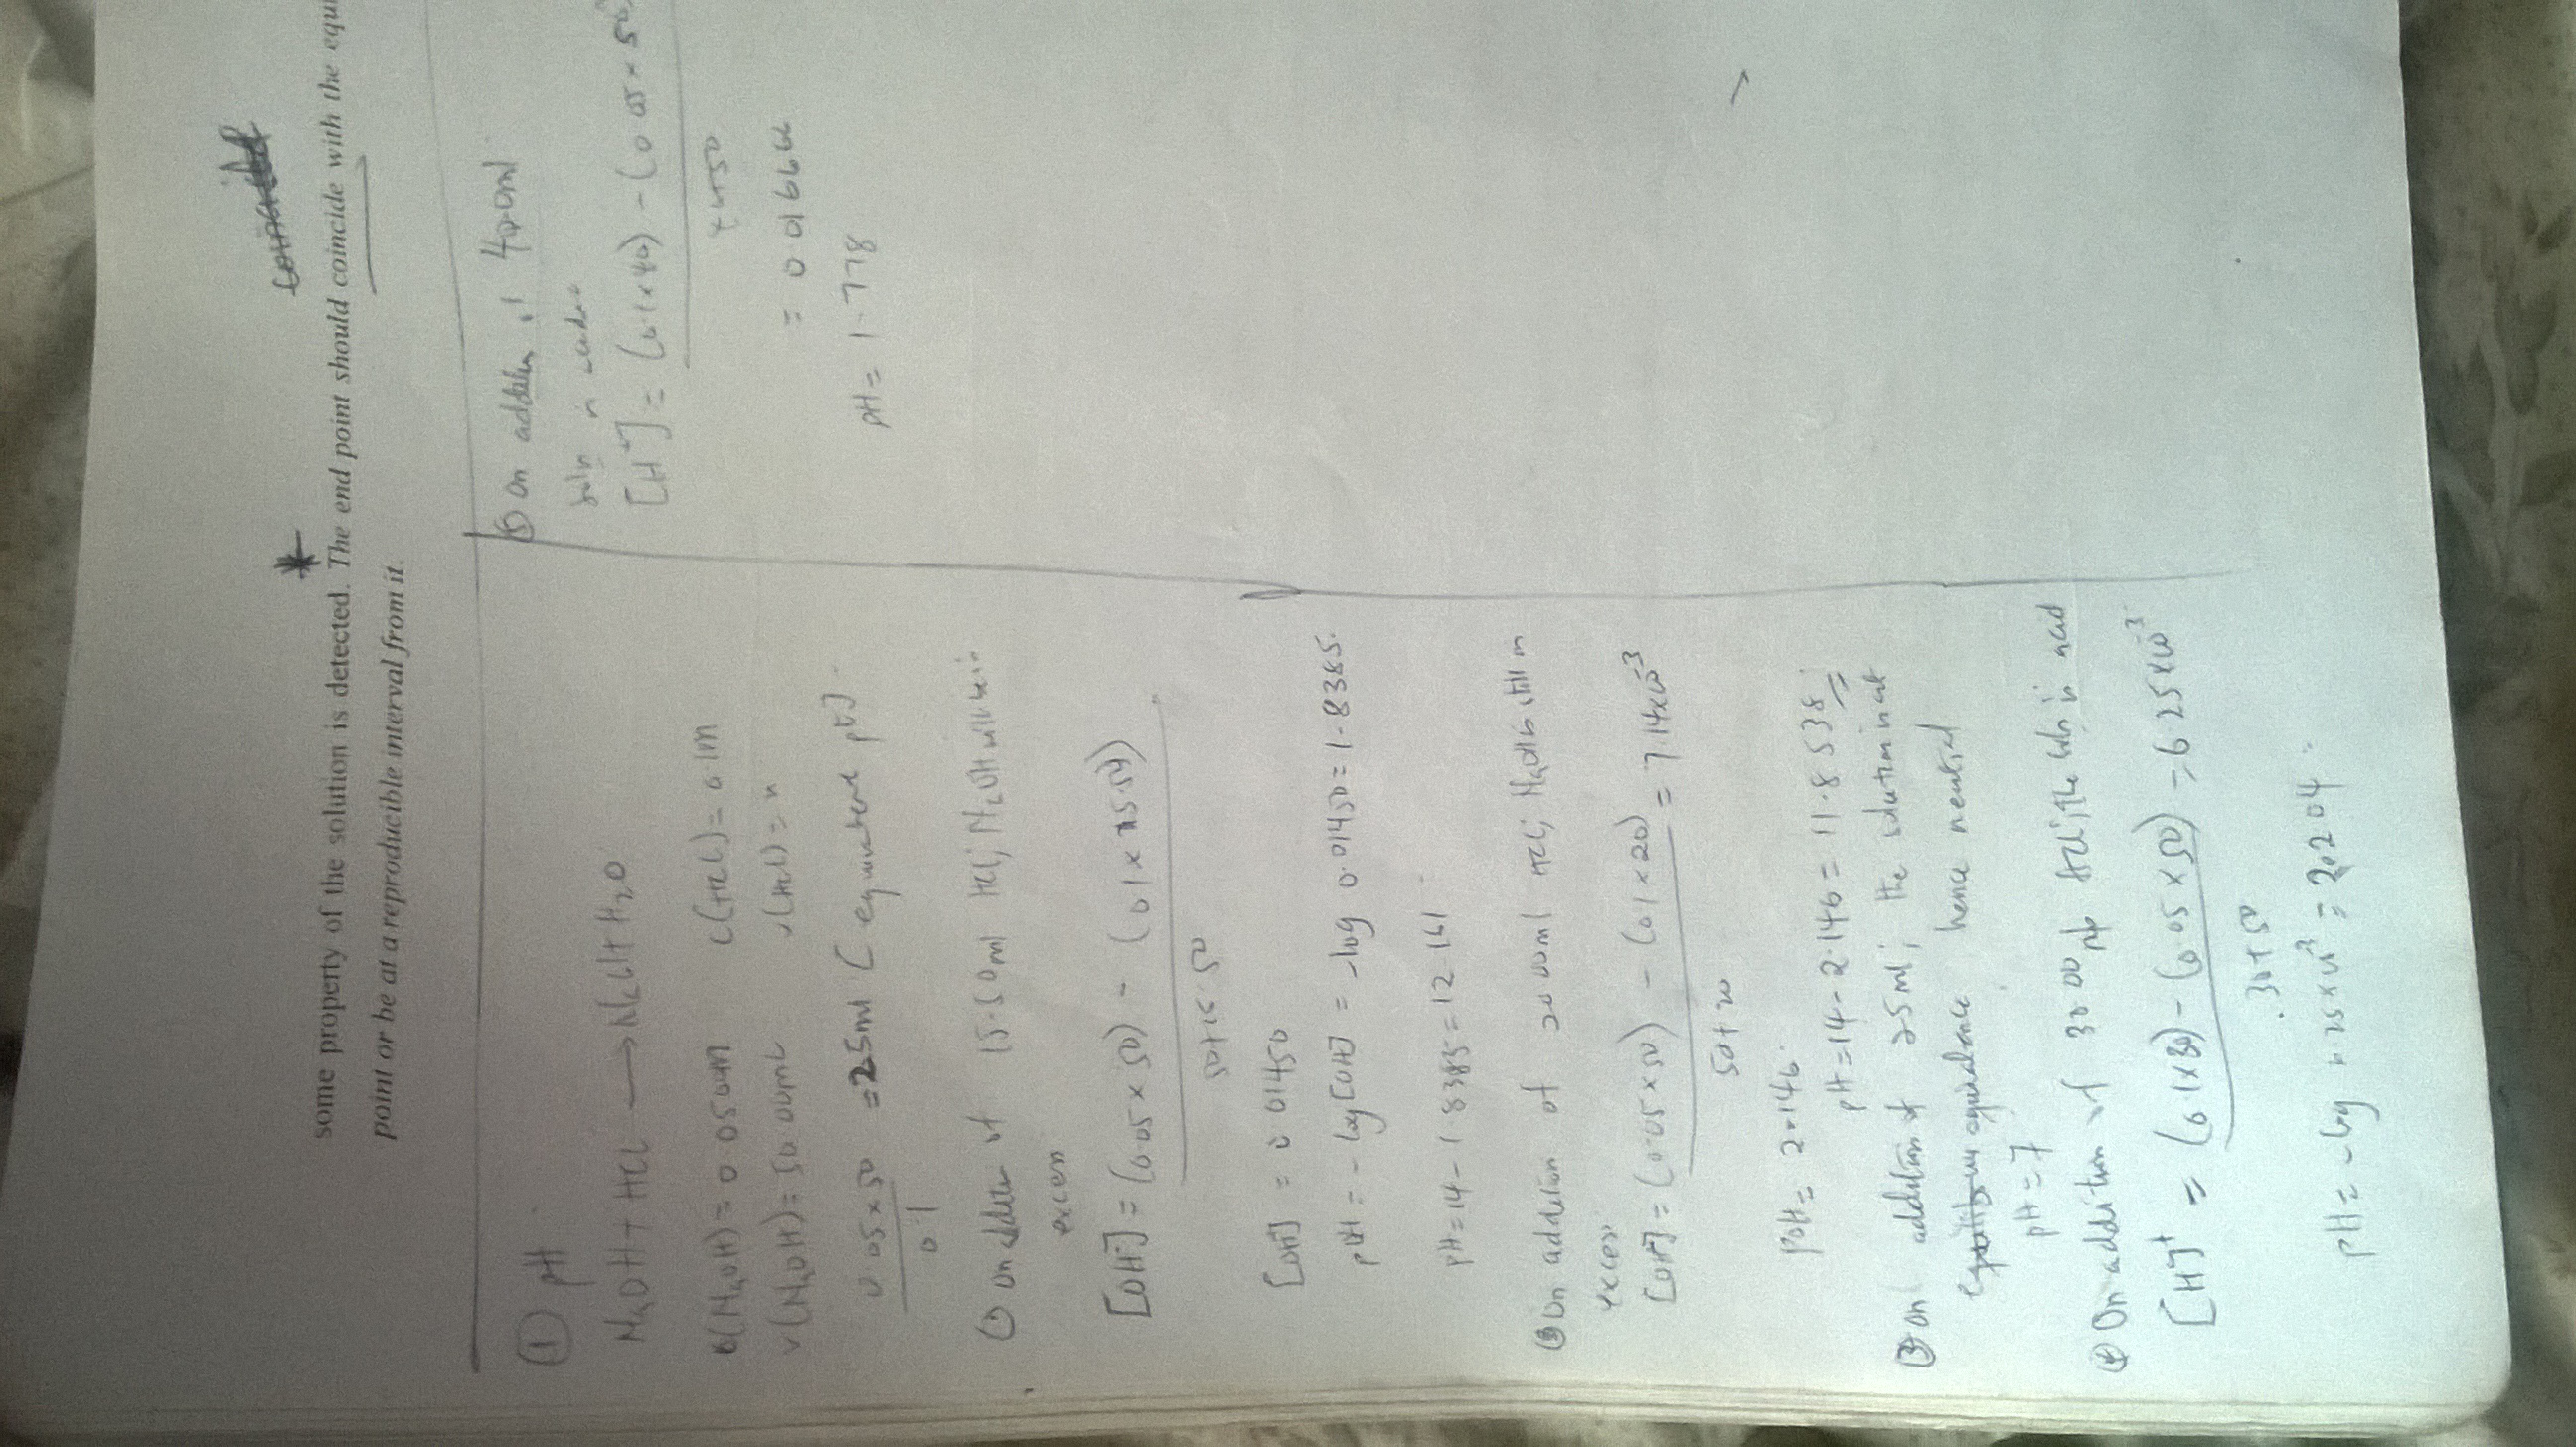 some property of the solution is detected. The end point should coincide with the equi
point or be at a reproducible interval from it.
① pH
NaOH + HCl → NaCl + H2O
c(NaOH) = 0.0500M c(HCl) = 0.1M
v(NaOH) = 50.00mL v(HCl) = x
0.05 × 50 = 25ml (equivalence pt)
0.1
① On addition of 15.50ml HCl, NaOH will be in
excess
[OH-] = (0.05 × 50) - (0.1 × 15.50)
50 + 15.50
[OH-] = 0.01450
pOH = -log[OH-] = -log 0.01450 = 1.8385.
pH = 14 - 1.8385 = 12.161
② On addition of 20.00ml HCl, NaOH is still in
excess
[OH-] = (0.05 × 50) - (0.1 × 20) = 7.14×10-3
50 + 20
pOH = 2.146.
pH = 14 - 2.146 = 11.8538
③ On addition of 25ml, the solution is at
equivalence hence neutral
pH = 7
④ On addition of 30.00 HCl, the soln is acid
[H]+ = (0.1×30) - (0.05 × 50) = 6.25×10-3
30 + 50
pH = -log 6.25×10-3 = 2.204.
⑤ On addition of 40.00ml
soln is
[H+] = (0.1×40) - (0.05 × 50)
40+50
= 0.01666
pH = 1.778